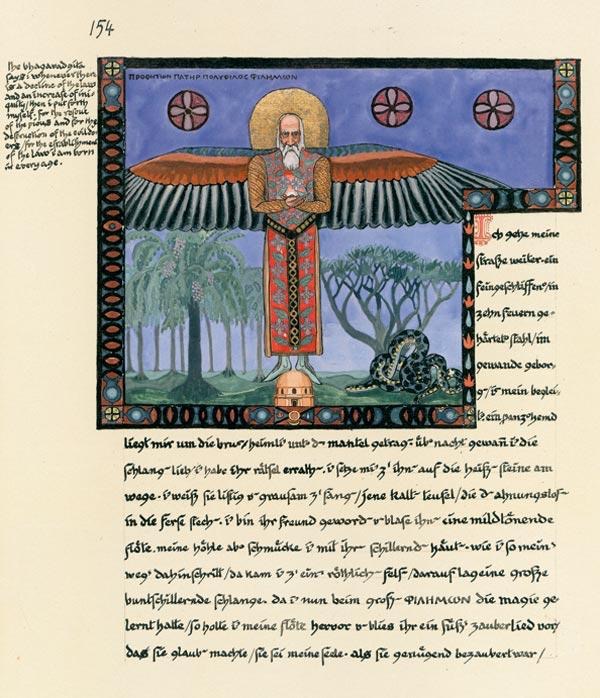 154
the bhagavadgita
says: whenever there
is a decline of the law
and an increase of ini-
quity / then i put forth
myself. for the rescue
of the pious and for the
destruction of the evildo-
ers / for the establishment
of the law i am born
in every age.
ΠΡΟΦΗΤΩΝ ΠΑΤΗΡ ΠΟΛΥΦΙΛΟΣ ΦΙΛΗΜΩΝ
Ich gehe meine
straße weiter. ein
feingeschliffen / in
zehn feuern ge-
härtet stahl / im
gewande gebor-
g / ist mein beglei-
ein panzerhemd
liegt mir um die brust / heiml unt d mantel getrag. üb nacht gewañ i die
schlang lieb / i habe ihr rätsel errath. i setze mi z' ihn auf die heiß steine am
wege. i weiß sie listig u grausam z' fang / jene kalt teufel / die d ahnungslos
in die ferse stech. i bin ihr freund geword u blase ihn eine mildtönende
flöte. meine höhle ab schmücke i mit ihr schillernd häut. wie i so mein
weg dahinschritt / da kam i z' ein röthlich fels / darauf lag eine große
buntschillernde schlange. da i nun beim groß ΦΙΛΗΜΩΝ die magie ge-
lernt hatte / so holte i meine flöte hervor u blies ihr ein süß zauberlied vor /
das sie glaub machte / sie sei meine seele. als sie genügend bezaubert war /